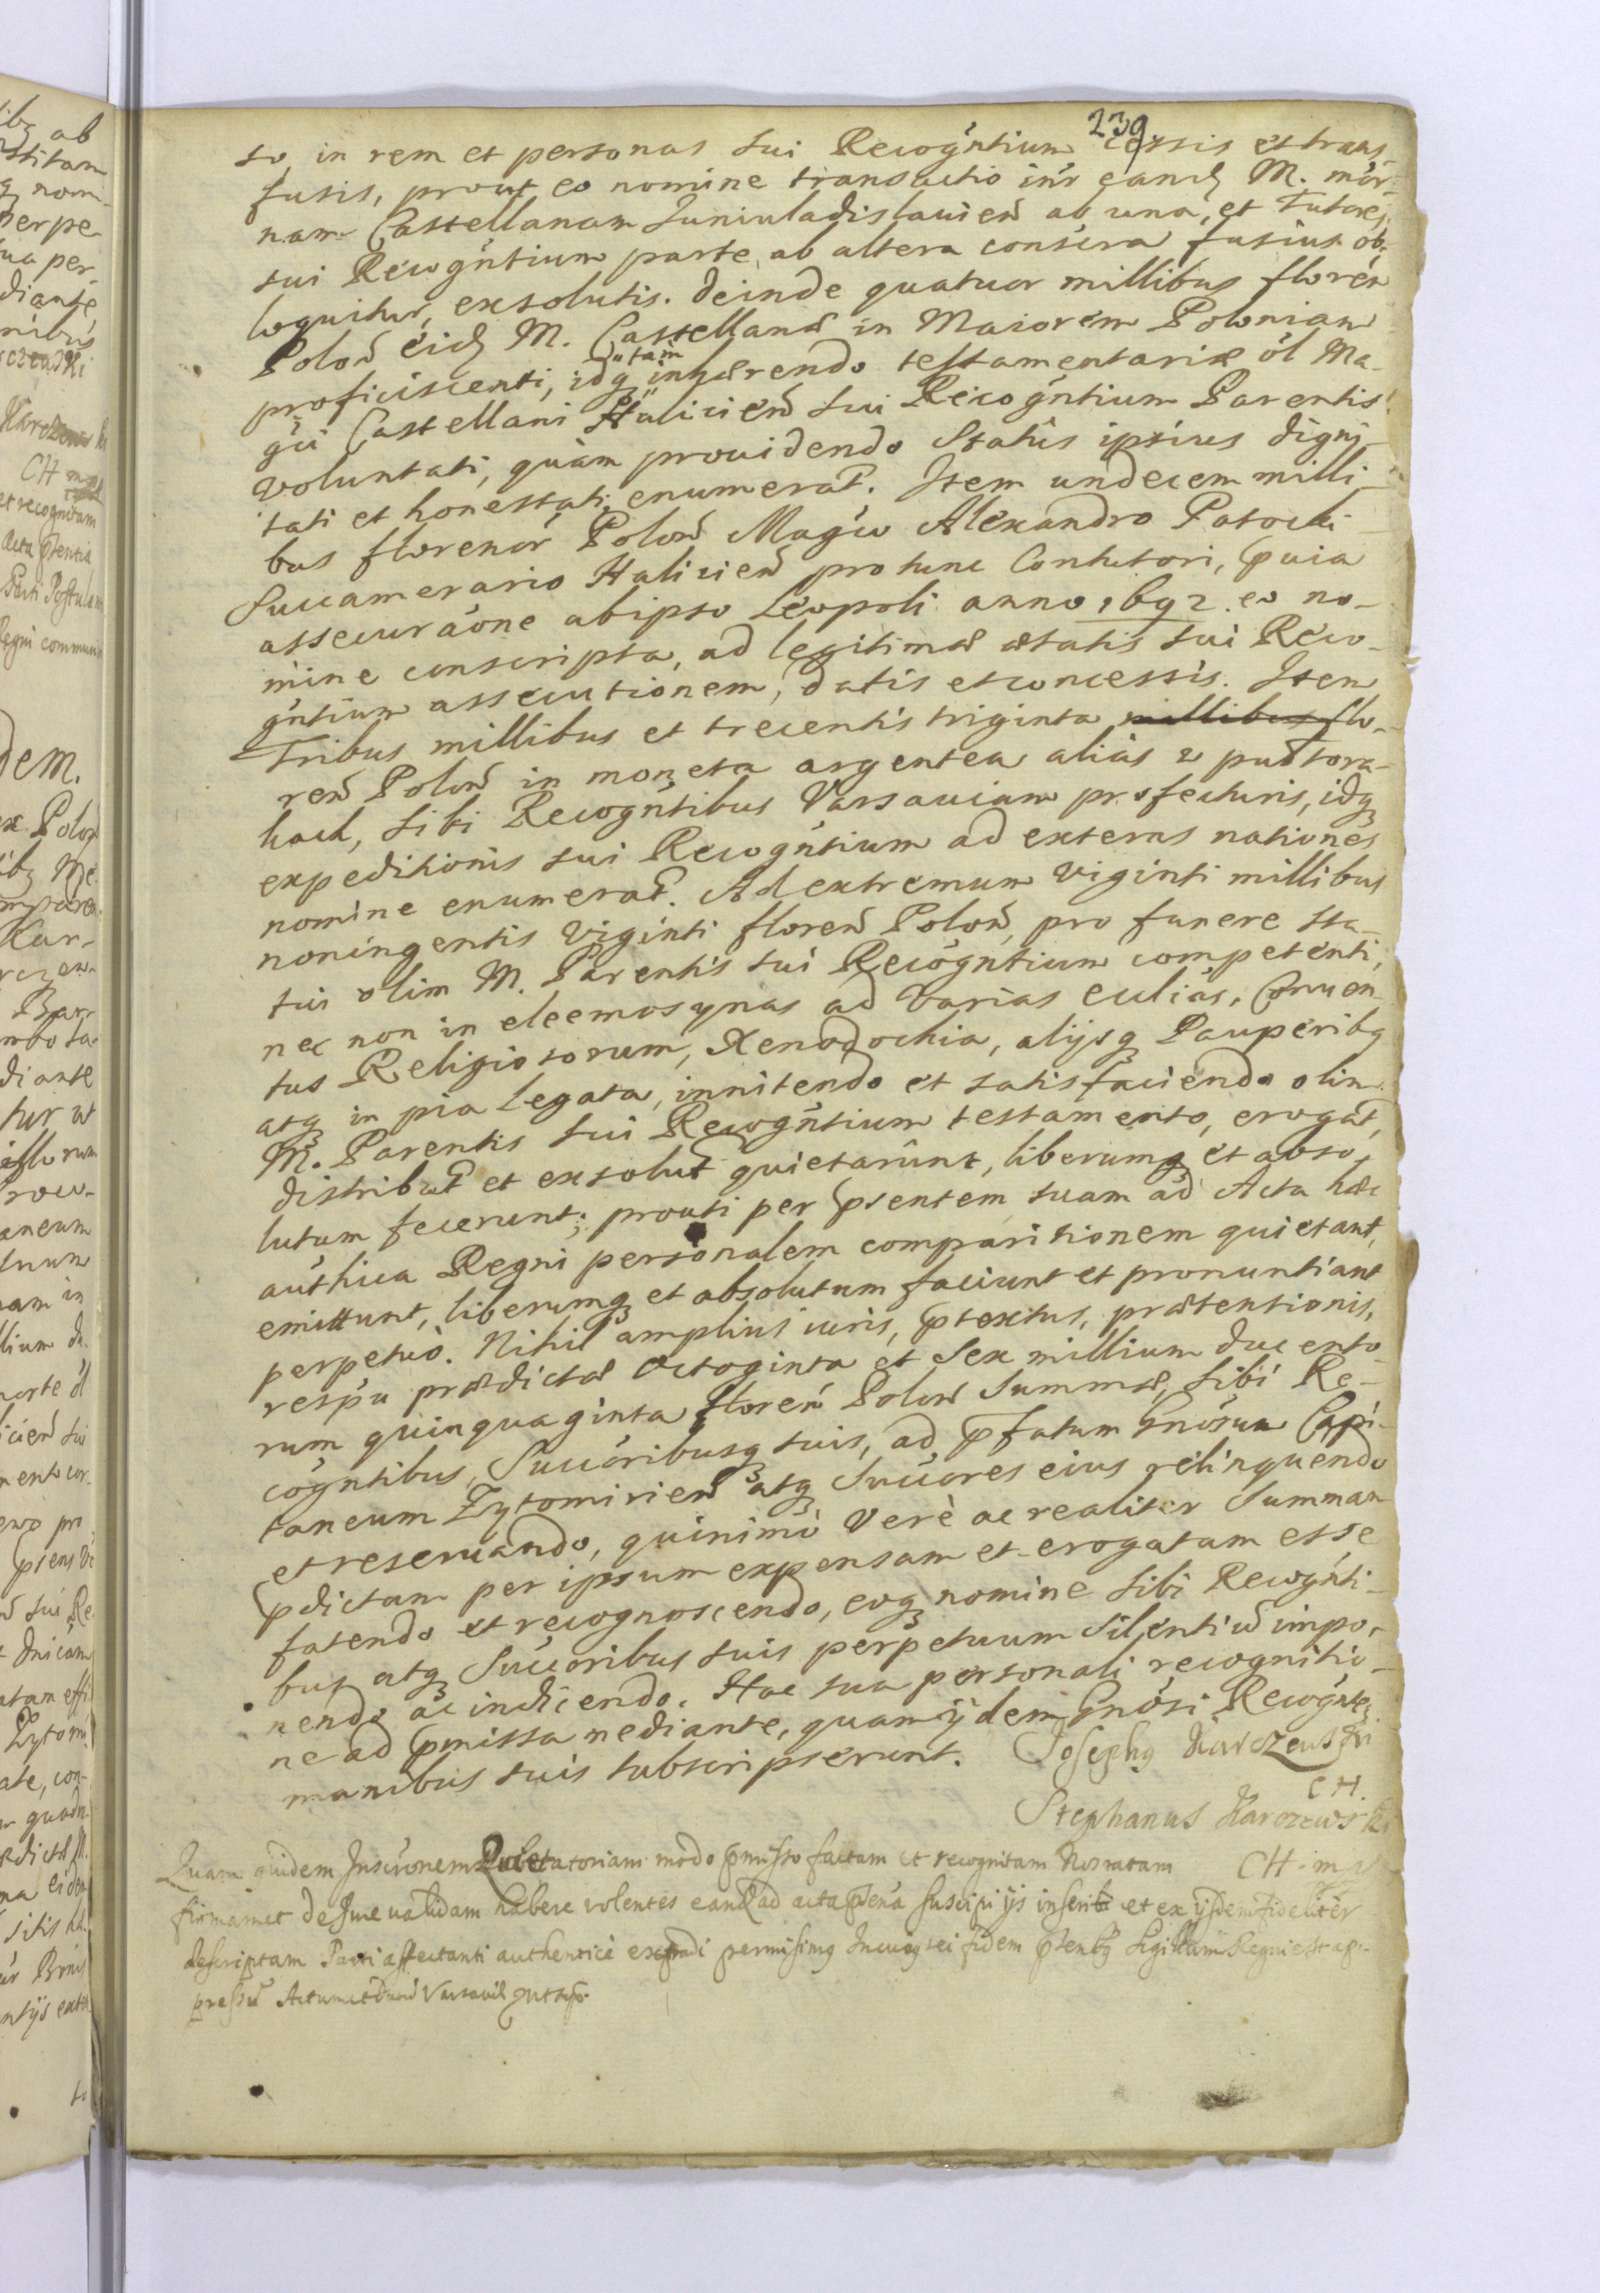 239
to, in rem et personas sui Recogntium cessis et trans
fusis, prout eo nomine transactio inr eand M. mŏr-
nam Castellanam Juniuladislauien ab una, et Tutores
sui Recogntium parte ab altera consĉra fusius ob-
loquitur, exsolutis. deinde quatuor millibus floren
Polon eid M. Castellanæ in Maiorem Poloniam
proficiscenti, idq tam inhærendo testamentariæ ol Ma-
gci Castellani Halicien sui Recogntium Parentis
voluntati, quàm prouidendo Statûs ipsius digni-
tati et honestati, enumerat. Item undecem milli-
bus florenor Polon Magco Alexandro Potocki
Succamerario Halicien pro tunc Contutori, quia
assecuraone ab ipso Leopoli anno 1692. eo no-
mine conscripta, ad legitimæ ætatis sui Reco-
gntium assecutionem, datis et concessis. Item
Tribus millibus et trecentis triginta millibus flo-
ren Polon in moneta argentea aliàs w pułtora-
kach, sibi Recogntibus Varsauiam profecturis, idq
expeditionis sui Recogntium ad exteras nationes
nomine enumerat. Ad extremum Viginti millibus
noningentis Viginti floren Polon, pro funere sta-
tui olim M. Parentis sui Recogntium competenti,
nec non in eleemosynas ad Varias Eclias, Conuen-
tus Religiosorum, Xenodochia, alijsq Pauperibq
atq in pia Legata, innitendo et satisfaciendo olim
M. Parentis sui Recogntium testamento, erogat,
distribut et exsolut quietarunt, liberumq et abso-
lutum fecerunt; prouti per pntem suam ad Acta hæc
authca Regni personalem comparitionem quietant,
emittunt, liberumq et absolutum faciunt et pronuntiant
perpetuò. Nihil amplius iuris, ptextus, prætensionis,
respu prædictæ Octoginta et Sex millium ducento-
rum quinquaginta floren Polon Summæ, sibi Re-
cogntibus, Succoribusq suis, ad pfatum Gnosum Capi-
taneum Zytomirien atq Succores eius relinquendo
et reseruando, quinimò Verè ac realiter Summam
pdictam per ipsum expensam et erogatam esse
fatendo et recognoscendo, eoq nomine sibi Recognti-
bus atq Succoribus suis perpetuum Silentiu impo-
nendo ac indicendo. Hac sua personali recognitio-
ne ad pmissa mediante, quam ijdem Gnosi Recogntes
manibus suis subscripserunt. Josephq Karczewski
CH.
Stephanus Karczewski
CH mp
Quam quidem Inscronem Quietatoriam modo pmisso factam et recognitam Nos ratam
firmamet de Jure validam habere volentes eand ad acta psenā suscipi ijs inseri et ex ijsdem fideliter
descriptam Parti affectanti authenticè extradi permisimq In cuiq rei fidem psentbq Sigillum Regni est ap-
pressu Actum et Datu Varsauiæ ut supr.